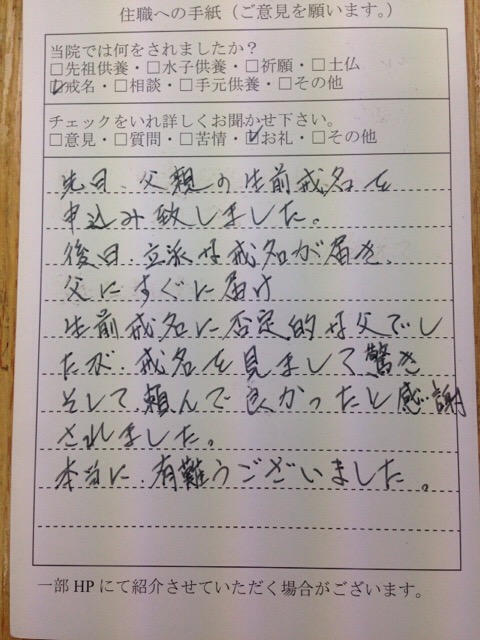 住職への手紙（ご意見を願います。）
当院では何をされましたか？
□先祖供養・□水子供養・□祈願・□土仏
☑戒名・□相談・□手元供養・□その他
チェックをいれ詳しくお聞かせ下さい。
□意見・□質問・□苦情・☑お礼・□その他
先日、父親の生前戒名を
申込み致しました。
後日、立派な戒名が届き、
父にすぐに届け
生前戒名に否定的な父でし
たが、戒名を見まして驚き
そして、頼んで良かったと感謝
されました。
本当に、有難うございました。
一部HPにて紹介させていただく場合がございます。